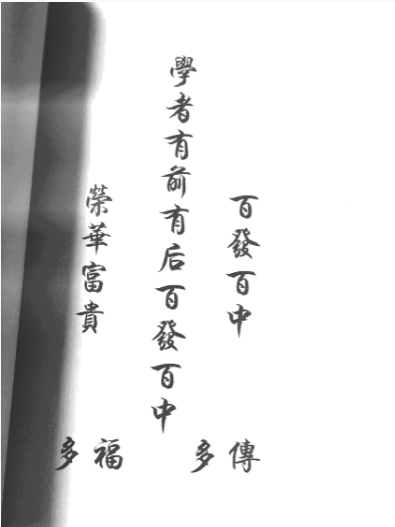 百發百中
學者有前有后百發百中
榮華富貴
多福 多傳